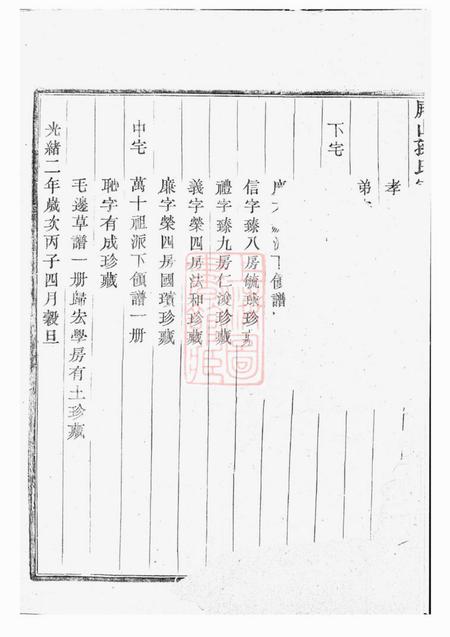 孝
弟
下宅
信字臻八房毓球珍
禮字臻九房仁浚珍藏
義字榮四房法和珍藏
廉字榮四房國璜珍藏
中宅 萬十祖派下領譜一册
恥字有成珍藏
毛邊草譜一册歸宏學房有土珍藏
光緒二年歲次丙子四月穀旦